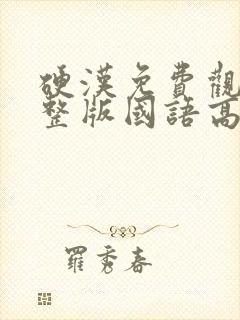 硬漢免費觀
整版國語高
羅秀春